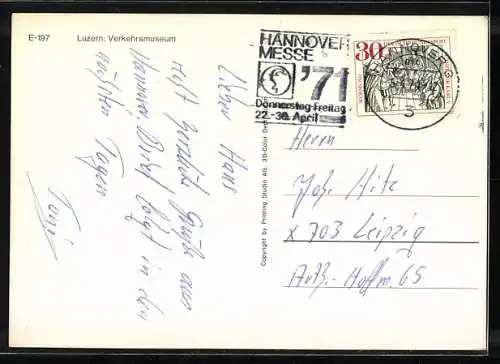 E-197 Luzern: Verkehrsmuseum
HANNOVER
MESSE
'71
Donnerstag-Freitag
22.-30. April
30
HANNOVER
Copyright by Printing Studio AG, 3D-Color
Lieber Hans
erst herzliche Grüße aus
Hannover Brief folgt in den
nächsten Tagen
Toni
Herrn
Joh. Hitz
X 703 Leipzig
Arth.-Hoffm. 65